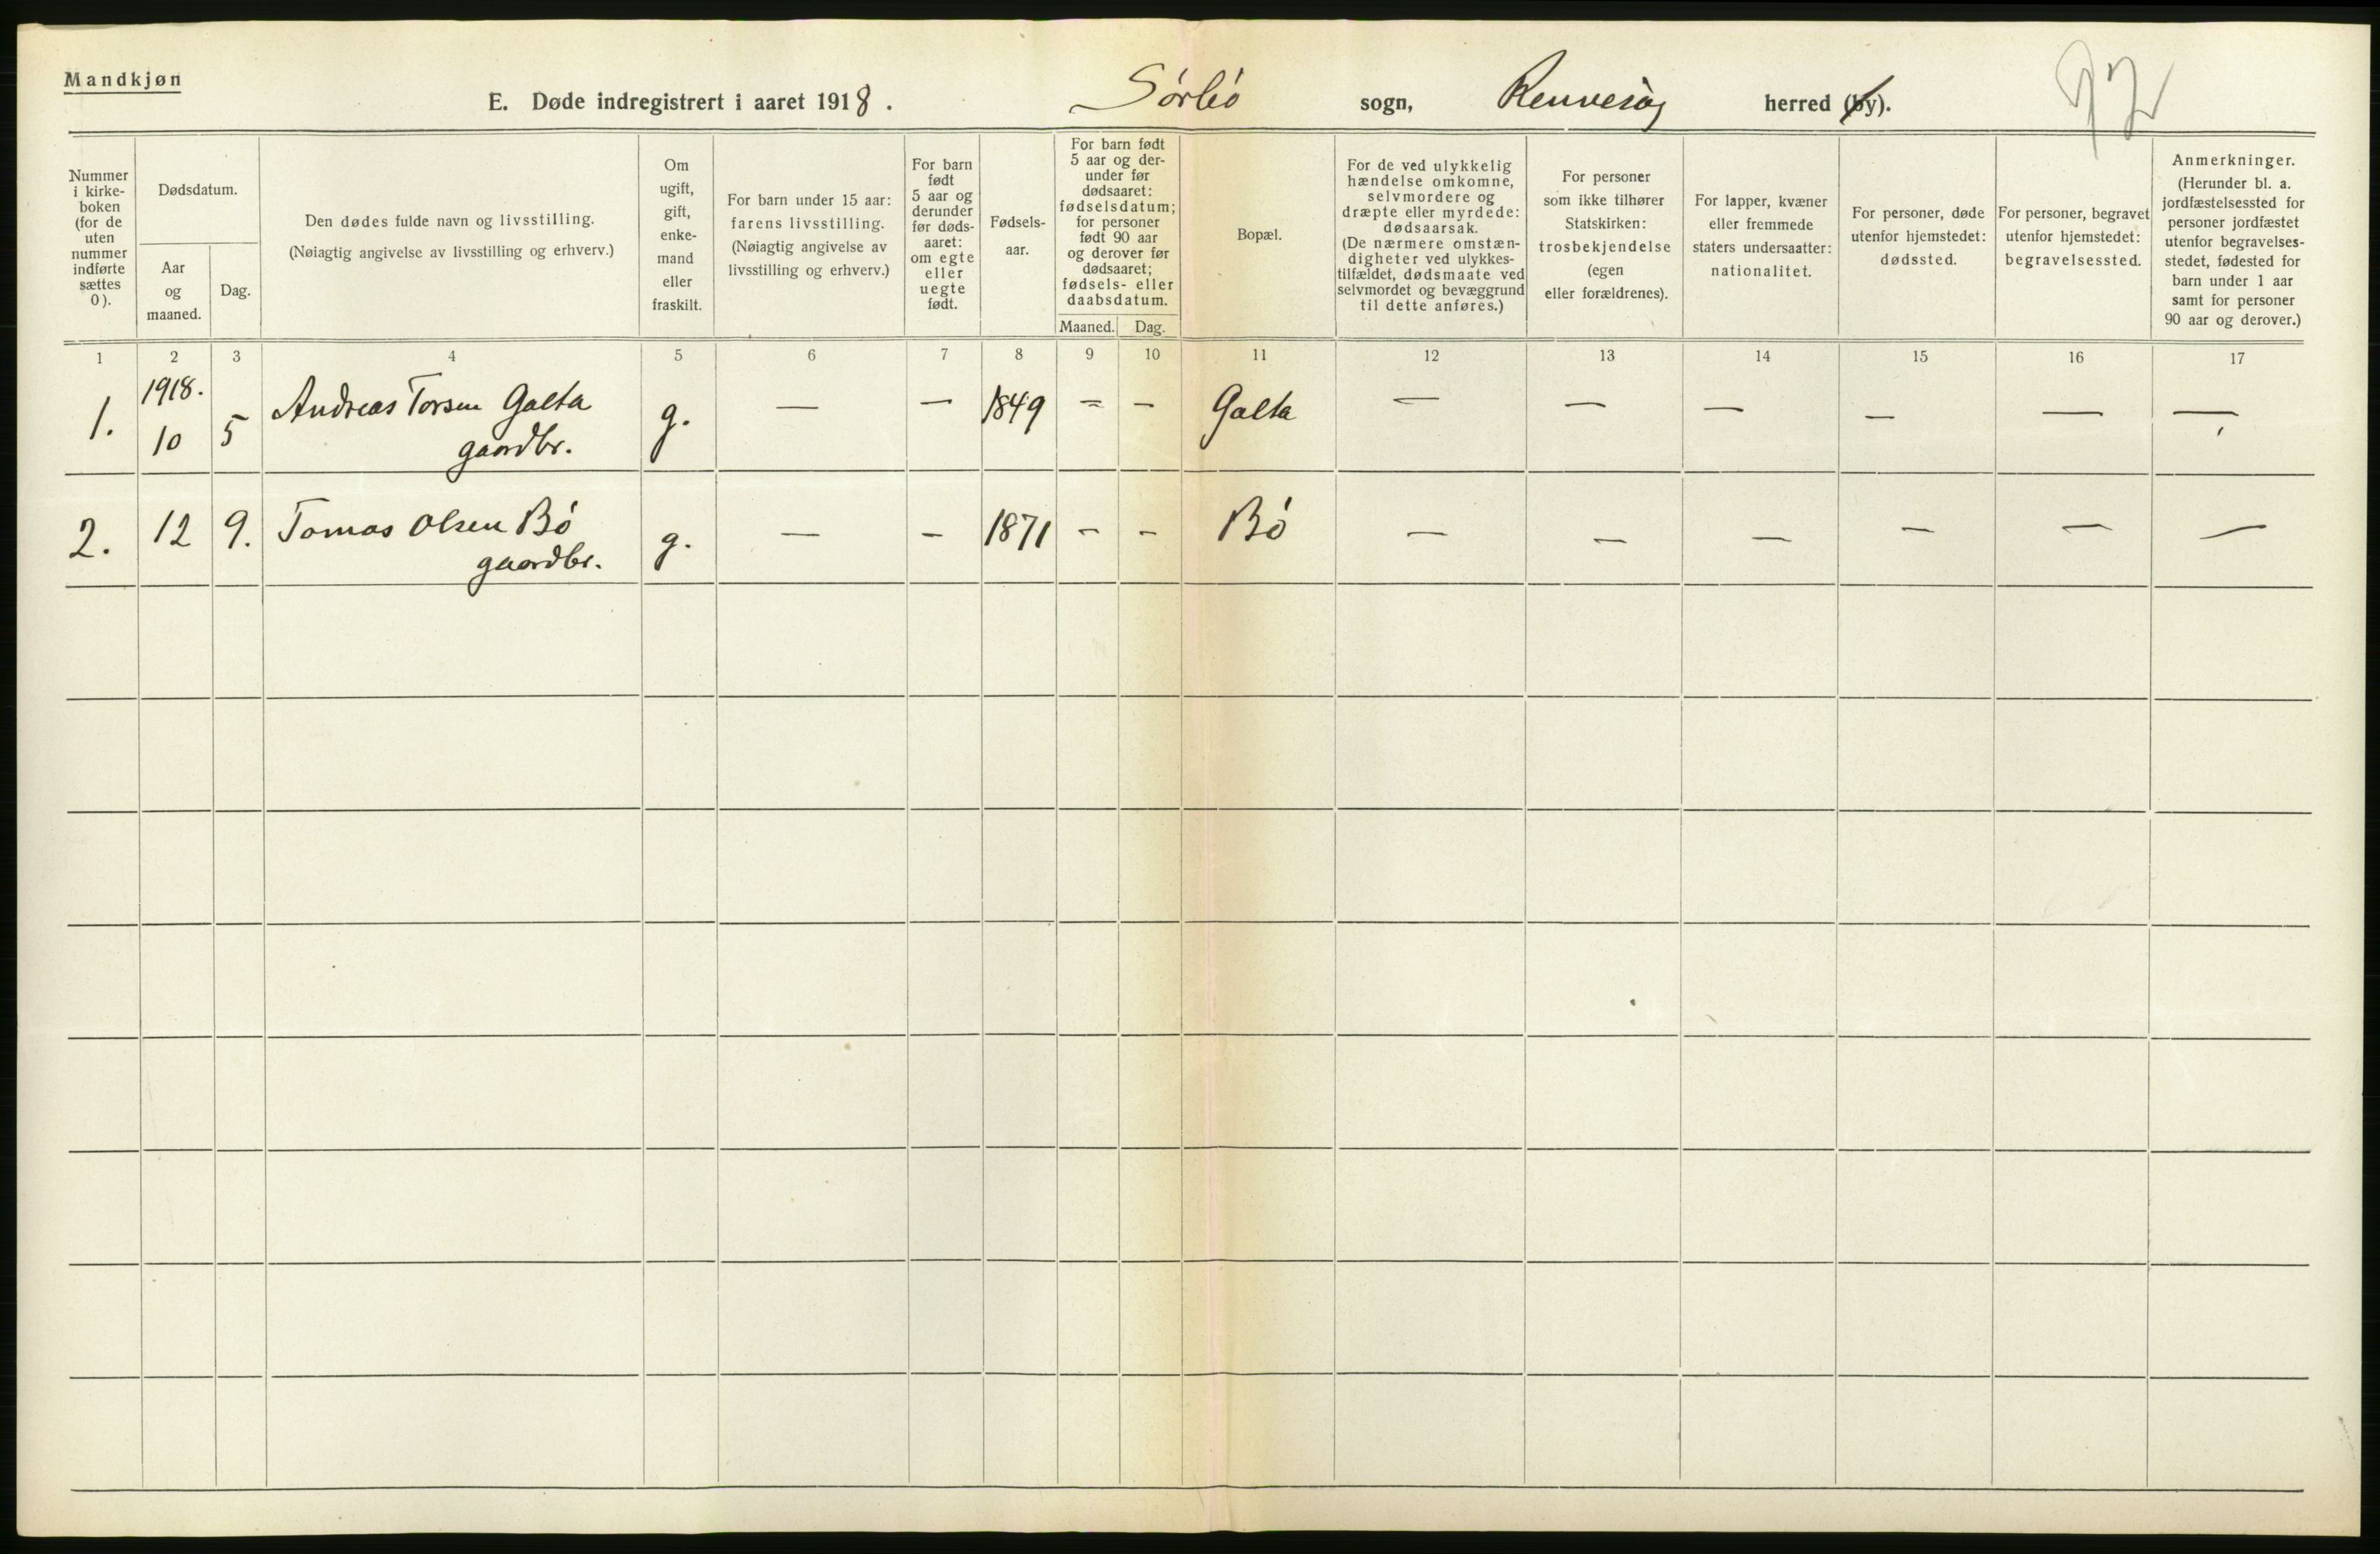 Mandkjøn
E. Døde indregistrert i aaret 1918. Sörbö sogn, Rennesöy herred (by).
Nummer i kirke-boken (for de uten nummer indførte sættes 0).
Dødsdatum.
Aar og maaned.
Dag.
Den dødes fulde navn og livsstilling.
(Nøiagtig angivelse av livsstilling og erhverv.)
Om ugift, gift, enke-mand eller fraskilt.
For barn under 15 aar: farens livsstilling. (Nøiagtig angivelse av livsstilling og erhverv.)
For barn født 5 aar og derunder før døds-aaret: om egte eller uegte født.
Fødsels-aar.
For barn født 5 aar og der-under før dødsaaret: fødselsdatum; for personer født 90 aar og derover før dødsaaret; fødsels- eller daabsdatum.
Maaned. Dag.
Bopæl.
For de ved ulykkelig hændelse omkomne, selvmordere og dræpte eller myrdede: dødsaarsak. (De nærmere omstæn-digheter ved ulykkes-tilfældet, dødsmaate ved selvmordet og bevæggrund til dette anføres.)
For personer som ikke tilhører Statskirken: trosbekjendelse (egen eller forældrenes).
For lapper, kvæner eller fremmede staters undersaatter: nationalitet.
For personer, døde utenfor hjemstedet: dødssted.
For personer, begravet utenfor hjemstedet: begravelsessted.
Anmerkninger. (Herunder bl. a. jordfæstelsessted for personer jordfæstet utenfor begravelses-stedet, fødested for barn under 1 aar samt for personer 90 aar og derover.)
1 2 3 4 5 6 7 8 9 10 11 12 13 14 15 16 17
1918.
1. 10 5 Andreas Torsen Galta g. — — 1849 = – Galta — — — — — —
gaardbr.
2. 12 9. Tomas Olsen Bö g. — – 1871 – – Bö — — — — — —
gaardbr.